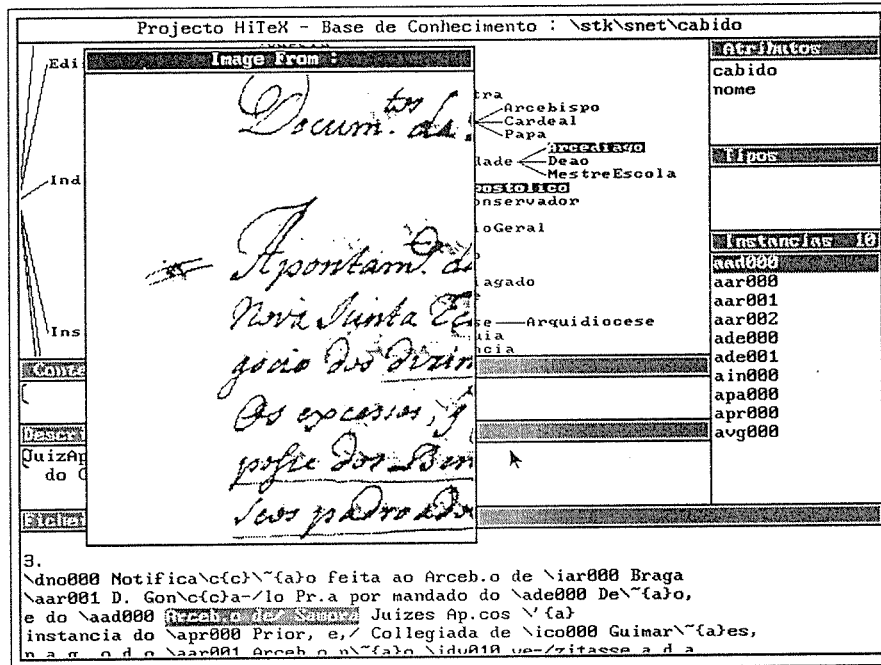 Projecto HiTeX - Base de Conhecimento : \stk\snet\cabido
Edi
Ind
Ins
Image From :
Docum.tos da
Apontam.
Nova Junta
gocio dos dizim
Os excessos, q
posse dos Ben
seos padroado
tra
Arcebispo
Cardeal
Papa
dade
Arcediago
Deao
MestreEscola
postolico
onservador
ioGeral
o
agado
se
Arquidiocese
uia
ncia
Atributos
cabido
nome
Tipos
Instancias 10
aad000
aar000
aar001
aar002
ade000
ade001
ain000
apa000
apr000
avg000
Conte
Descri
JuizAp
do C
Ficheir
3.
\dno000 Notifica\c{c}\~{a}o feita ao Arceb.o de \iar000 Braga
\aar001 D. Gon\c{c}a-/lo Pr.a por mandado do \ade000 De\~{a}o,
e do \aad000 Arceb.o de/ Samora Juizes Ap.cos \'{a}
instancia do \apr000 Prior, e,/ Collegiada de \ico000 Guimar\~{a}es,
n.a q. o d.o \aar001 Arceb.o n\~{a}o \idv010 ve-/zitasse a d.a